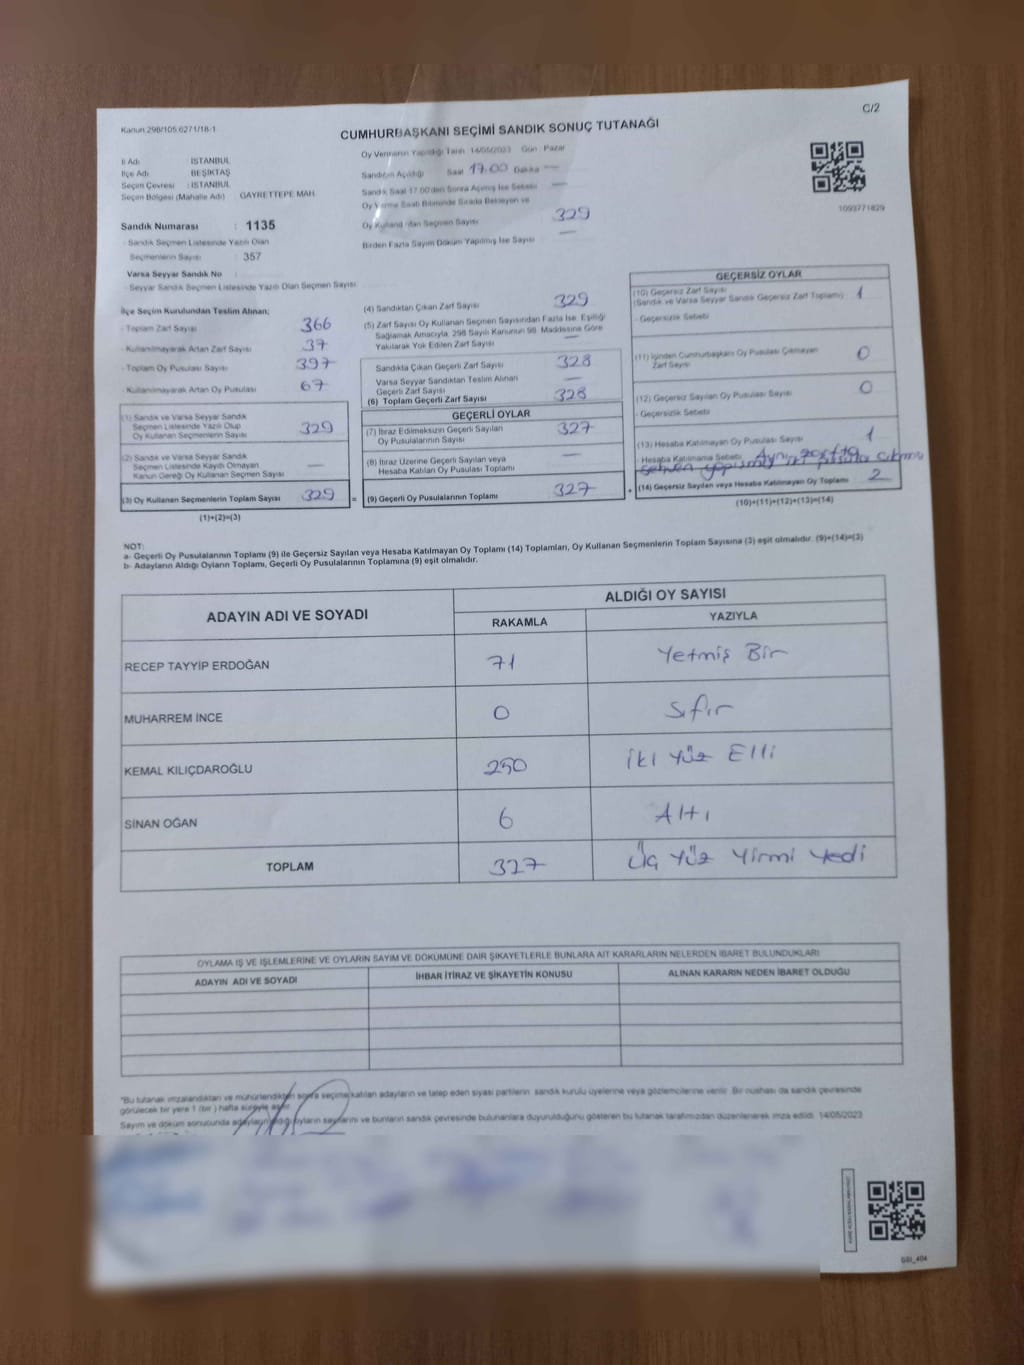 Kanun 298/105;6271/18-1
C/2
CUMHURBAŞKANI SEÇİMİ SANDIK SONUÇ TUTANAĞI
İl Adı : İSTANBUL
İlçe Adı : BEŞİKTAŞ
Seçim Çevresi : İSTANBUL
Seçim Bölgesi (Mahalle Adı) : GAYRETTEPE MAH.
Sandık Numarası : 1135
- Sandık Seçmen Listesinde Yazılı Olan
Seçmenlerin Sayısı : 357
Varsa Seyyar Sandık No
- Seyyar Sandık Seçmen Listesinde Yazılı Olan Seçmen Sayısı
Oy Vermenin Yapıldığı Tarih 14/05/2023 Gün : Pazar
Sandığın Açıldığı Saat 17.00 Dakika —
Sandık Saat 17.00'den Sonra Açılmış İse Sebebi —
Oy Verme Saati Bitiminde Sırada Bekleyen ve
Oy Kullandırılan Seçmen Sayısı 329
Birden Fazla Sayım Döküm Yapılmış İse Sayısı —
1093771829
İlçe Seçim Kurulundan Teslim Alınan;
- Toplam Zarf Sayısı 366
- Kullanılmayarak Artan Zarf Sayısı 37
- Toplam Oy Pusulası Sayısı 397
- Kullanılmayarak Artan Oy Pusulası 67
(1) Sandık ve Varsa Seyyar Sandık
Seçmen Listesinde Yazılı Olup
Oy Kullanan Seçmenlerin Sayısı 329
(2) Sandık ve Varsa Seyyar Sandık
Seçmen Listesinde Kayıtlı Olmayan
Kanun Gereği Oy Kullanan Seçmen Sayısı —
(3) Oy Kullanan Seçmenlerin Toplam Sayısı 329 =
(1)+(2)=(3)
(4) Sandıktan Çıkan Zarf Sayısı 329
(5) Zarf Sayısı Oy Kullanan Seçmen Sayısından Fazla İse, Eşitliği
Sağlamak Amacıyla, 298 Sayılı Kanunun 98. Maddesine Göre
Yakılarak Yok Edilen Zarf Sayısı —
Sandıkta Çıkan Geçerli Zarf Sayısı 328
Varsa Seyyar Sandıktan Teslim Alınan
Geçerli Zarf Sayısı —
(6) Toplam Geçerli Zarf Sayısı 328
GEÇERLİ OYLAR
(7) İtiraz Edilmeksizin Geçerli Sayılan
Oy Pusulalarının Sayısı 327
(8) İtiraz Üzerine Geçerli Sayılan veya
Hesaba Katılan Oy Pusulası Toplamı —
(9) Geçerli Oy Pusulalarının Toplamı 327 +
GEÇERSİZ OYLAR
(10) Geçersiz Zarf Sayısı
(Sandık ve Varsa Seyyar Sandık Geçersiz Zarf Toplamı) 1
- Geçersizlik Sebebi
(11) İçinden Cumhurbaşkanı Oy Pusulası Çıkmayan
Zarf Sayısı 0
(12) Geçersiz Sayılan Oy Pusulası Sayısı 0
- Geçersizlik Sebebi
(13) Hesaba Katılmayan Oy Pusulası Sayısı 1
- Hesaba Katılmama Sebebi Aynı zarfta
(14) Geçersiz Sayılan veya Hesaba Katılmayan Oy Toplamı 2
(10)+(11)+(12)+(13)=(14)
NOT:
a- Geçerli Oy Pusulalarının Toplamı (9) ile Geçersiz Sayılan veya Hesaba Katılmayan Oy Toplamı (14) Toplamları, Oy Kullanan Seçmenlerin Toplam Sayısına (3) eşit olmalıdır. (9)+(14)=(3)
b- Adayların Aldığı Oyların Toplamı, Geçerli Oy Pusulalarının Toplamına (9) eşit olmalıdır.
ADAYIN ADI VE SOYADI
ALDIĞI OY SAYISI
RAKAMLA YAZIYLA
RECEP TAYYİP ERDOĞAN 71 Yetmiş Bir
MUHARREM İNCE 0 Sıfır
KEMAL KILIÇDAROĞLU 250 İki Yüz Elli
SİNAN OĞAN 6 Altı
TOPLAM 327 Üç Yüz Yirmi Yedi
OYLAMA İŞ VE İŞLEMLERİNE VE OYLARIN SAYIM VE DÖKÜMÜNE DAİR ŞİKAYETLERLE BUNLARA AİT KARARLARIN NELERDEN İBARET BULUNDUKLARI
ADAYIN ADI VE SOYADI İHBAR İTİRAZ VE ŞİKAYETİN KONUSU ALINAN KARARIN NEDEN İBARET OLDUĞU
*Bu tutanak imzalandıktan ve mühürlendikten sonra seçime katılan adayların ve talep eden siyasi partilerin sandık kurulu üyelerine veya gözlemcilerine verilir. Bir nüshası da sandık çevresinde
görülecek bir yere 1 (bir) hafta süreyle asılır.
Sayım ve döküm sonucunda adayların aldığı oyların sayılarını ve bunların sandık çevresinde bulunanlara duyurulduğunu gösteren bu tutanak tarafımızdan düzenlenerek imza edildi. 14/05/2023